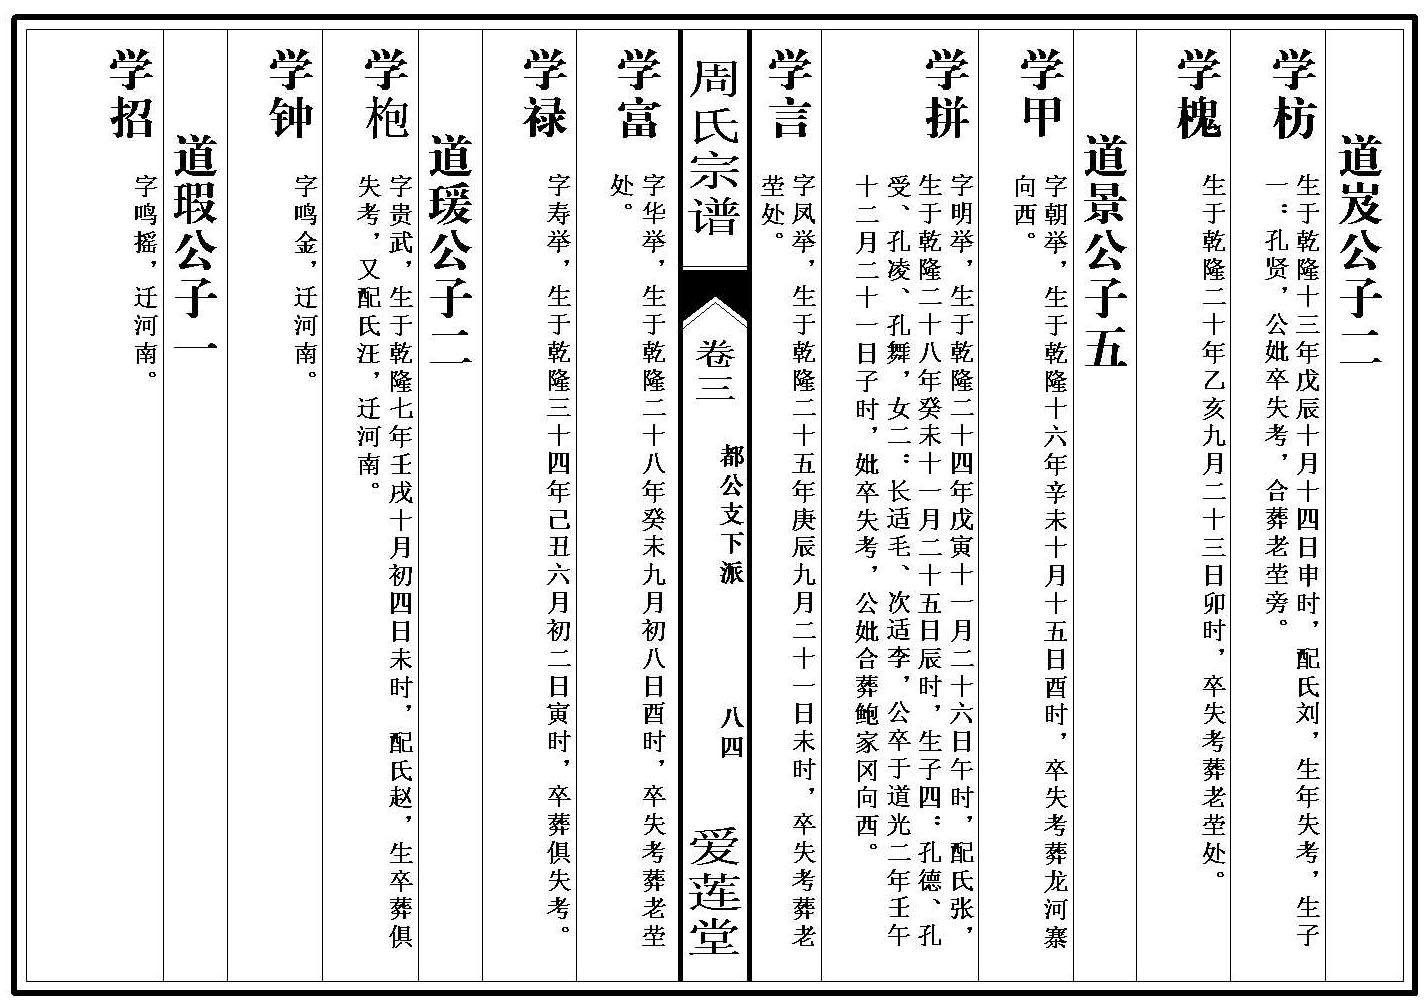 道岌公子二
学枋
生于乾隆十三年戊辰十月十四日申时，配氏刘，生年失考，生子
一：孔贤，公妣卒失考，合葬老茔旁。
学槐
生于乾隆二十年乙亥九月二十三日卯时，卒失考葬老茔处。
道景公子五
学甲
字朝举，生于乾隆十六年辛未十月十五日酉时，卒失考葬龙河寨
向西。
学拼
字明举，生于乾隆二十四年戊寅十一月二十六日午时，配氏张，
生于乾隆二十八年癸未十一月二十五日辰时，生子四：孔德、孔
受、孔凌、孔舞，女二：长适毛、次适李，公卒于道光二年壬午
十二月二十一日子时，妣卒失考，公妣合葬鲍家冈向西。
学言
字凤举，生于乾隆二十五年庚辰九月二十一日未时，卒失考葬老
茔处。
周氏宗谱
卷三
都公支下派
八四
爱莲堂
学富
字华举，生于乾隆二十八年癸未九月初八日酉时，卒失考葬老茔
处。
学禄
字寿举，生于乾隆三十四年己丑六月初二日寅时，卒葬俱失考。
道瑗公子二
学枹
字贵武，生于乾隆七年壬戌十月初四日未时，配氏赵，生卒葬俱
失考，又配氏汪，迁河南。
学钟
字鸣金，迁河南。
道瑕公子一
学招
字鸣摇，迁河南。